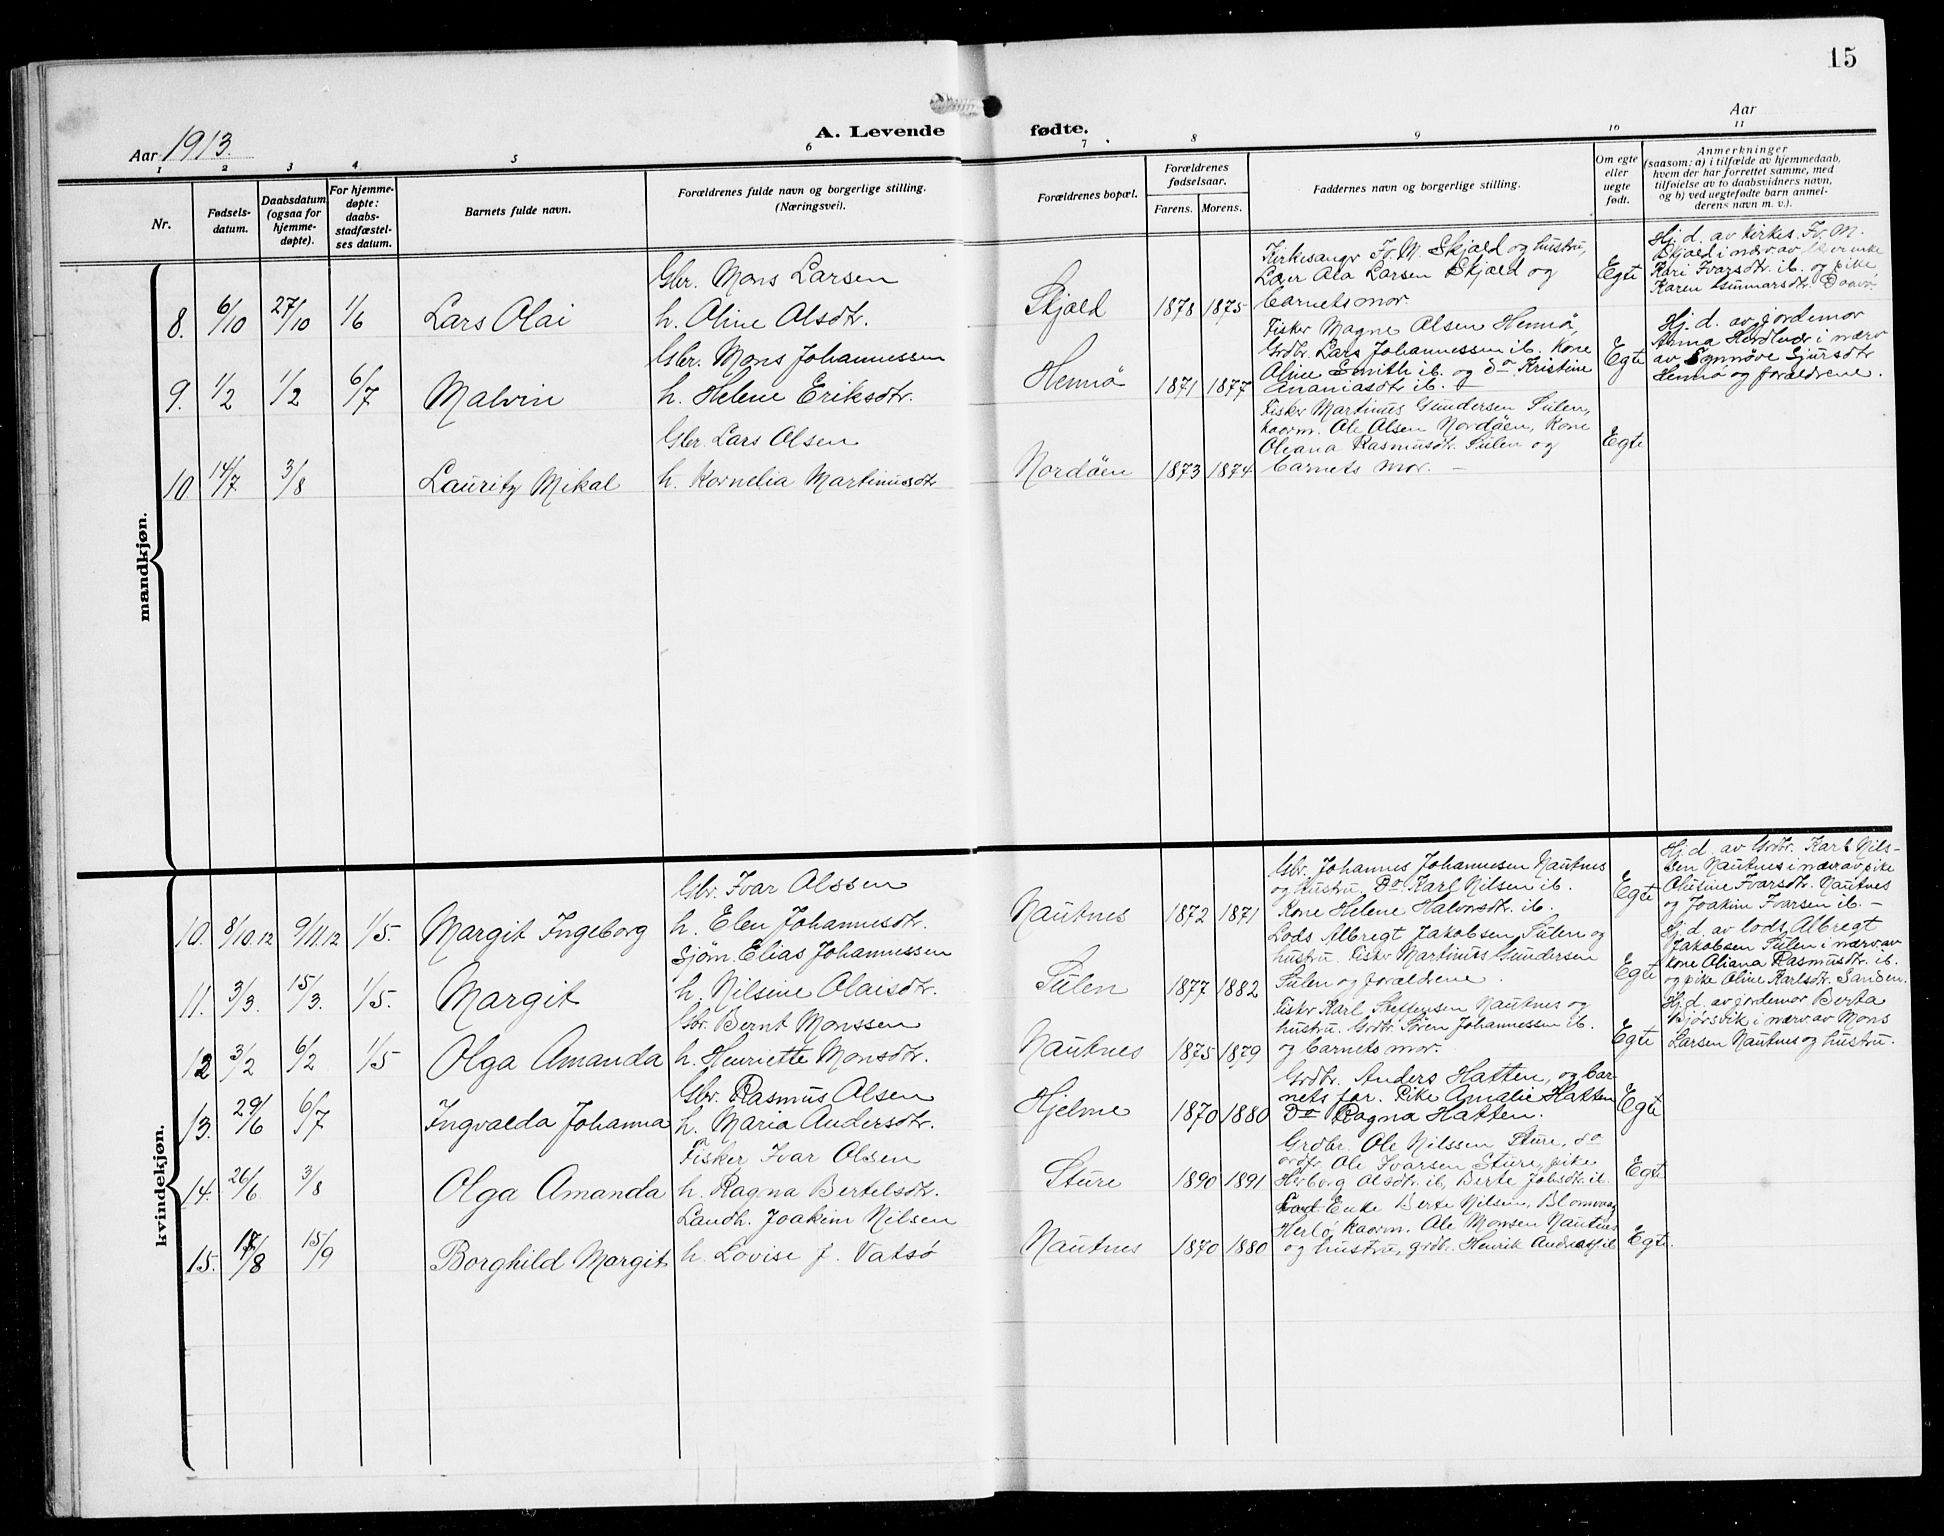 15
Aar 1913.
A. Levende fødte.
Aar
1 2 3 4 5 6 7 8 9 10 11
Nr.
Fødsels-
datum.
Daabsdatum
(ogsaa for
hjemme-
døpte).
For hjemme-
døpte:
daabs-
stadfæstel-
ses datum.
Barnets fulde navn.
Forældrenes fulde navn og borgerlige stilling.
(Næringsvei).
Forældrenes bopæl.
Forældrenes
fødselsaar.
Farens. Morens.
Faddernes navn og borgerlige stilling.
Om egte
eller
uegte
født.
Anmerkninger
(saasom: a) i tilfælde av hjemmedaab,
hvem der har forrettet samme, med
tilføielse av to daabsvidners navn,
og b) ved uegtefødte barn anmel-
derens navn m. v.).
mandkjøn.
8. 6/10 27/10 1/6 Lars Olai
Gbr. Mons Larsen
h. Oline Olsdtr.
Skjæld 1878 1875
Kirkesangr Iv. M. Skjæld og hustru,
Larsen Skjæld og
barnets mor.
Egte
Hj. d. av kirkes. Iv. M.
Skjæld i nærv. av
Kari Ivarsdtr. ib. og pike
Karen Gunnarsdt.
9. 1/2 1/2 6/7 Malvin
Gbr. Mons Johannessen
h. Helene Eriksdtr.
Hennø 1871 1877
Fisker Magne Olsen Hennø,
Grdbr. Lars Johannessen ib. Kone
Aline Smith ib. og do Kristine
Ananiasdtr ib.
Egte
Hj. d. av jordemor
Anna Herdlevær i nærv
av Synnøve Sjursdtr
Hennø og forældrene.
10 14/7 3/8 Lauritz Mikal
Gbr. Lars Olsen
h. Kornelia Martinusdtr
Nordøen 1873 1874
Fisker Martinus Gundersen Sulen,
kaarm. Ole Olsen Nordøen, Kone
Oleana Rasmusdtr. Sulen og
barnets mor. –
Egte
kvindekjøn.
10. 8/10.12 9/11.12 1/5. Margit Ingeborg
Gbr. Ivar Olssen
h. Elen Johannesdtr.
Nautnes 1872 1871
Gbr. Johannes Johannesen Nautnes
og hustru. Do Karl Nilsen ib.
Kone Helene Halvorsdtr. ib.
Egte
Hj. d. av Grdbr. Karl Nils-
sen Nautnes i nærv av pike
Olufine Ivarsdtr. Nautnes
og Joakim Ivarsen ib. –
11. 3/3. 15/3. 1/5. Margit
Sjøm. Elias Johannessen
h. Nilsine Olaisdtr.
Sulen 1877 1882
Lods Albregt Jakobsen Sulen og
hustru. Fisker Martinus Gundersen
Sulen og forældrene.
Egte
Hj. d. av lods Albregt
Jakobsen Sulen i nærv. av
kone Oliana Rasmusdtr. ib.
og pike Oline Karlsdtr. Sanden.
12 3/2 6/2 1/5 Olga Amanda
Gbr. Bernt Monssen
h. Henriette Monsdtr.
Nautnes 1875 1879
Fisker Karl Steffensen Nautnes og
hustru. Grdbr. Søren Johannessen ib.
og barnets mor.
Egte
Hj. d. av jordemor Berta
Bjørsvik i nærv. av Mons
Larsen Nautnes og hustru.
13. 29/6 6/7 Ingvalda Johanna
Gbr. Rasmus Olsen
h. Maria Andersdtr.
Hjelme 1870 1880
Grdbr. Anders Hatten, og bar-
nets far. Pike Amalie Hatten
Do Ragna Hatten.
Egte
14. 26/6 3/8 Olga Amanda
Fisker Ivar Olsen
h. Ragna Bertelsdtr.
Sture 1890 1891
Grdbr. Ole Nilssen Sture, do
Ole Ivarsen Sture, pike
Herborg Olsdtr. ib, Berte Jobsdtr. ib.
Egte
15. 17/8 15/9 Borghild Margit
Landh. Joakim Nilsen
h. Lovise f. Vatsø
Nautnes 1870 1880
Enke Berte Nilsen, Blomvaag
Herlø, kaarm. Ole Monsen Nautnes
og hustru, grdbr. Henrik ib
Egte.